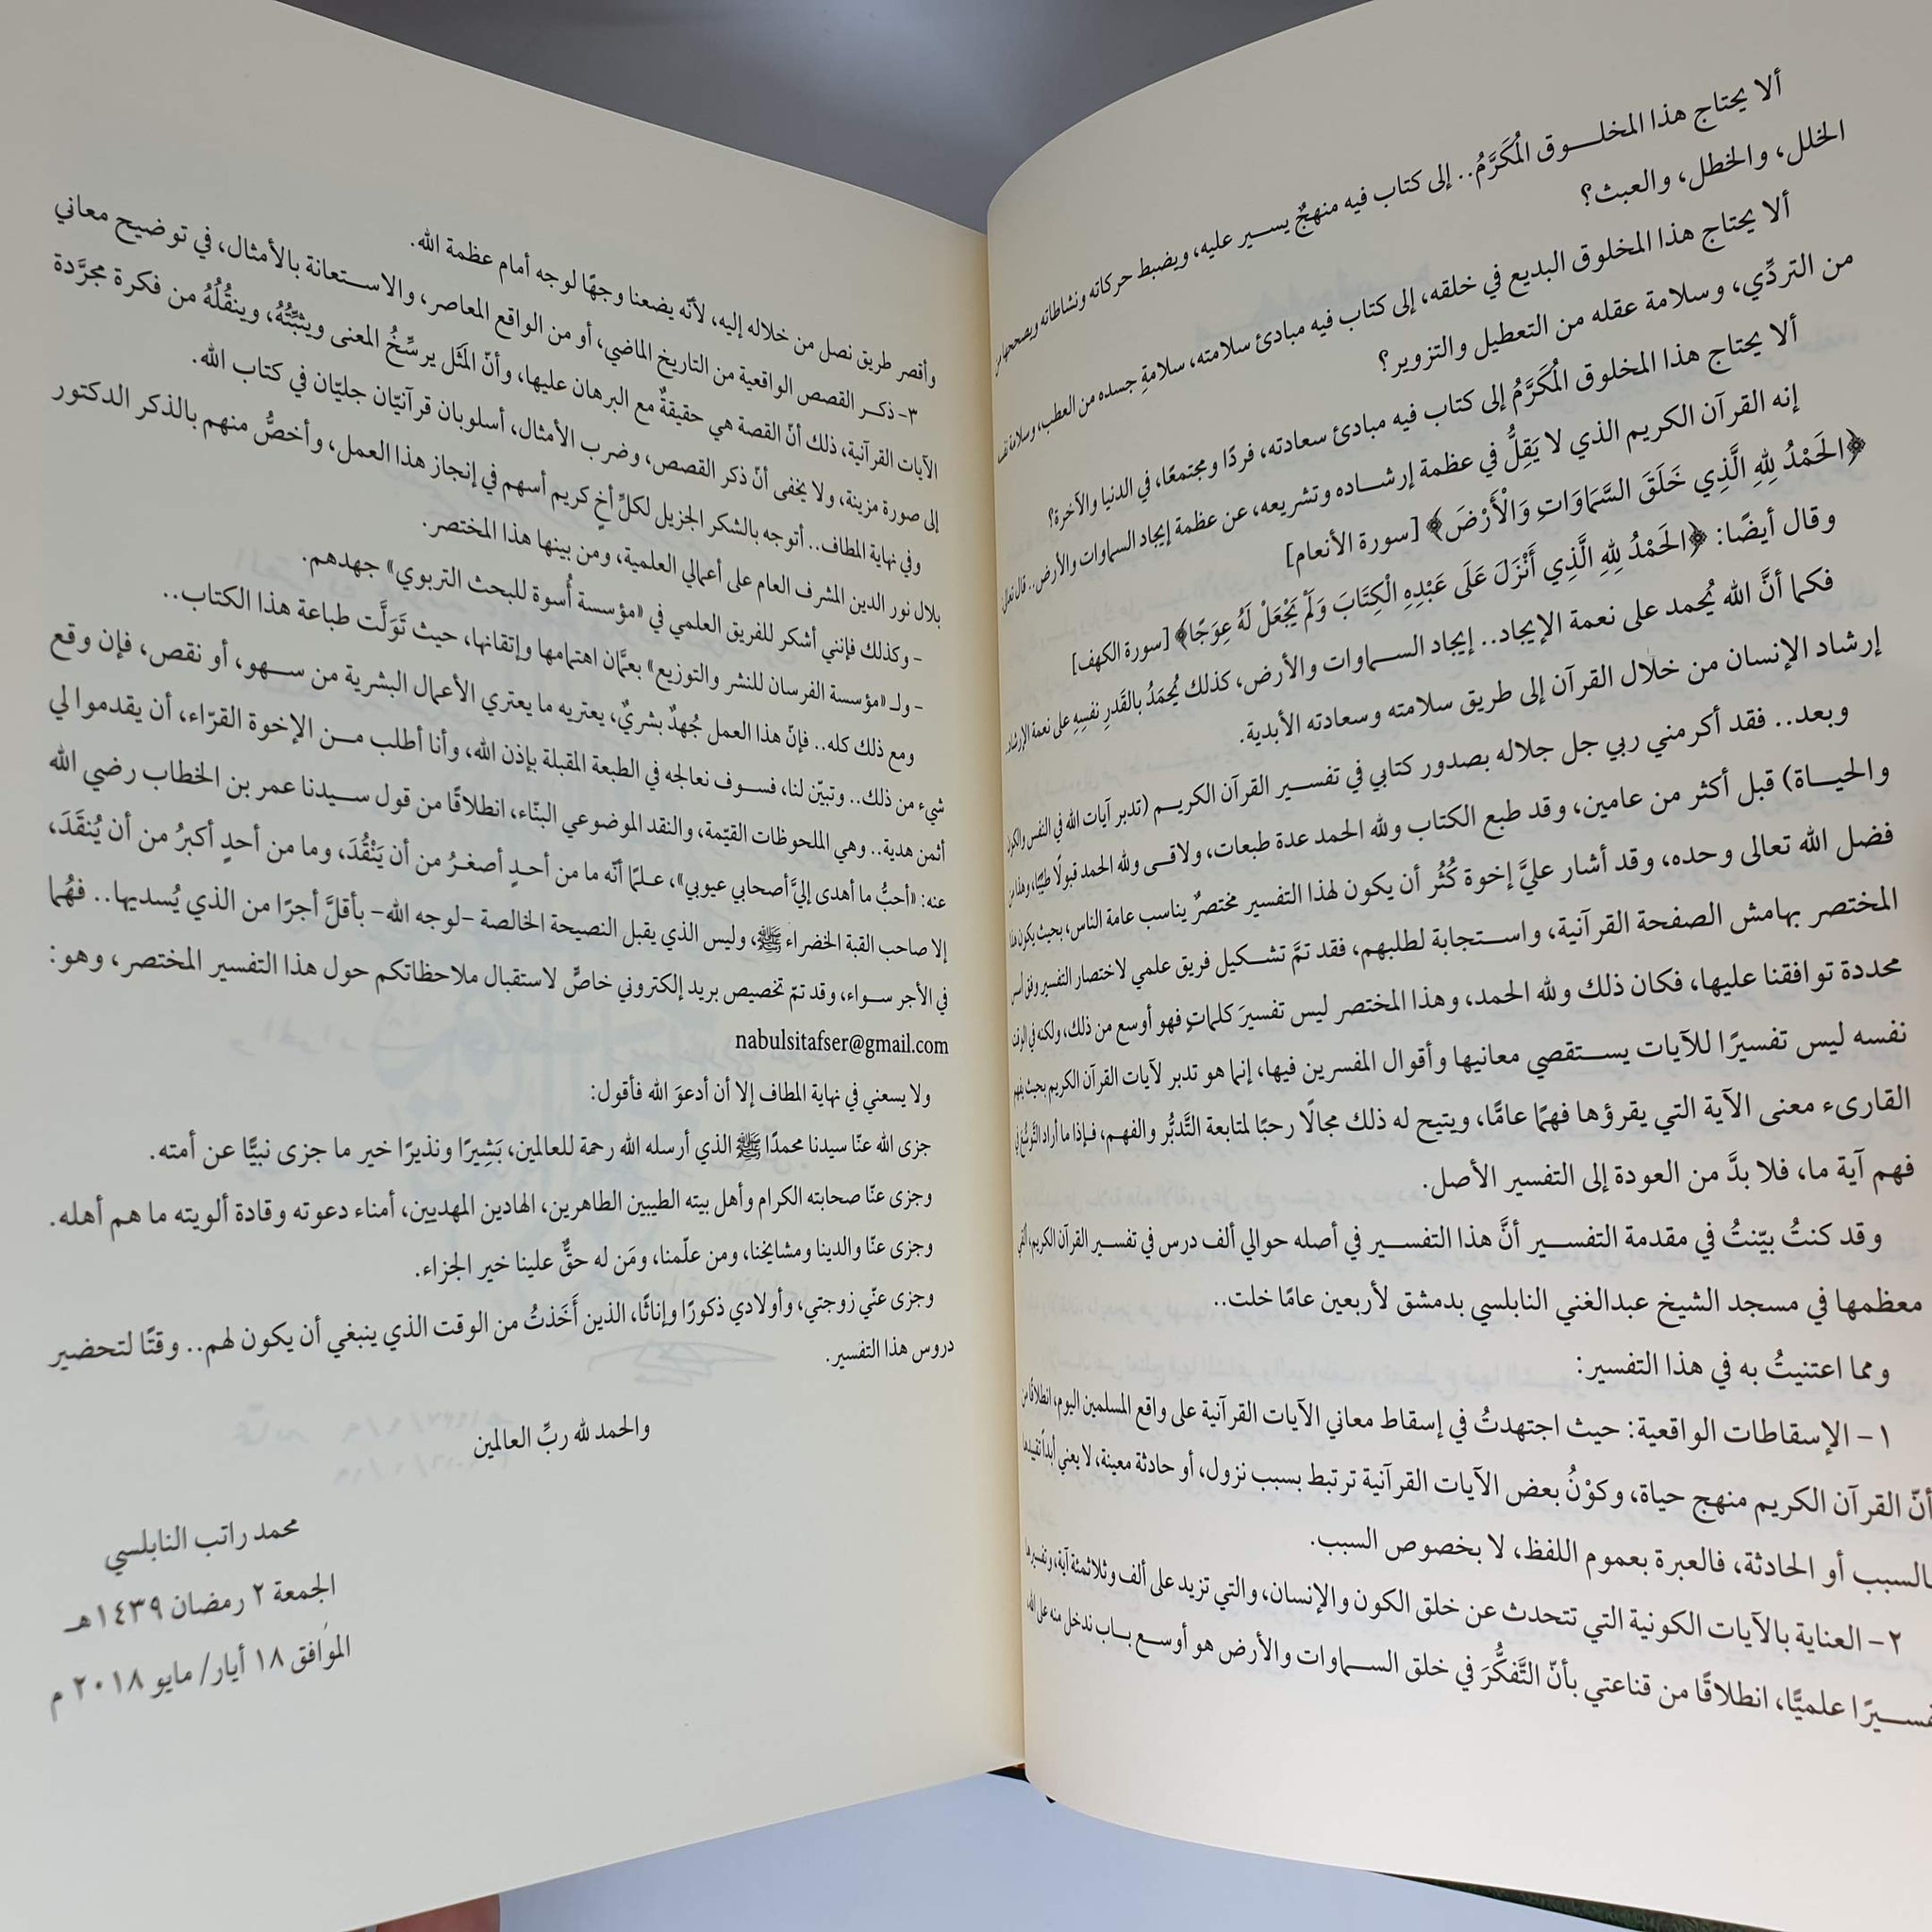 ألا يحتاج هذا المخلـــوق المُكَرَّمُ.. إلى كتاب فيه منهجٌ يســـير عليه، ويضبط حركاته ونشاطاته ويصححها من
الخلل، والخطل، والعبث؟
ألا يحتاج هذا المخلوق البديع في خلقه، إلى كتاب فيه مبادئ سلامته، سلامةِ جسده من العطب، وسلامة نفسه
من التردِّي، وسلامة عقله من التعطيل والتزوير؟
ألا يحتاج هذا المخلوق المُكَرَّمُ إلى كتاب فيه مبادئ سعادته، فردًا ومجتمعًا، في الدنيا والآخرة؟
إنه القرآن الكريم الذي لا يَقِلُّ في عظمة إرشـــاده وتشريعه، عن عظمة إيجاد السماوات والأرض.. قال تعالى:
﴿الْحَمْدُ لِلَّهِ الَّذِي خَلَقَ السَّمَاوَاتِ وَالْأَرْضَ﴾ [سورة الأنعام]
وقال أيضًا: ﴿الْحَمْدُ لِلَّهِ الَّذِي أَنْزَلَ عَلَى عَبْدِهِ الْكِتَابَ وَلَمْ يَجْعَلْ لَهُ عِوَجًا﴾ [سورة الكهف]
فكما أنَّ الله يُحمد على نعمة الإيجاد.. إيجاد الســـماوات والأرض، كذلك يُحمَدُ بالقَدرِ نفسِهِ على نعمة الإرشاد..
إرشاد الإنسان من خلال القرآن إلى طريق سلامته وسعادته الأبدية.
وبعد.. فقد أكرمني ربي جل جلاله بصدور كتابي في تفســـير القرآن الكريـــم (تدبر آيات الله في النفس والكون
والحيـــاة) قبل أكثر من عامين، وقد طبع الكتاب ولله الحمد عدة طبعات، ولاقـــى ولله الحمد قبولًا طيّبًا، وهذا من
فضل الله تعالى وحده، وقد أشار عليَّ إخوة كُثُر أن يكون لهذا التفسير مختصرٌ يناسب عامة الناس، بحيث يكون هذا
المختصر بهامش الصفحة القرآنية، واســـتجابة لطلبهم، فقد تمَّ تشـــكيل فريق علمي لاختصار التفسير وفق أسس
محددة توافقنا عليها، فكان ذلك ولله الحمد، وهذا المختصر ليس تفسيرَ كلماتٍ فهو أوسع من ذلك، ولكنه في الوقت
نفسه ليس تفسيرًا للآيات يســـتقصي معانيها وأقوال المفسرين فيها، إنما هو تدبر لآيات القرآن الكريم بحيث يفهم
القارىء معنى الآية التي يقرؤها فهمًا عامًّا، ويتيح له ذلك مجالًا رحبًا لمتابعة التَّدبُّر والفهـم، فإذا ما أراد التَّوسُّع في
فهم آية ما، فلا بدَّ من العودة إلى التفسير الأصل.
وقد كنتُ بيّنتُ في مقدمة التفســـير أنَّ هذا التفســـير في أصله حوالي ألف درس في تفســـير القرآن الكريم، ألقي
معظمها في مسجد الشيخ عبدالغني النابلسي بدمشق لأربعين عامًا خلت..
ومما اعتنيتُ به في هذا التفسير:
١- الإسقاطات الواقعية: حيث اجتهدتُ في إسقاط معاني الآيات القرآنية على واقع المسلمين اليوم، انطلاقًا من
أنّ القرآن الكريم منهج حياة، وكوْنُ بعض الآيات القرآنية ترتبط بسبب نزول، أو حادثة معينة، لا يعني أبداً تقييدها
بالسبب أو الحادثة، فالعبرة بعموم اللفظ، لا بخصوص السبب.
٢- العناية بالآيات الكونية التي تتحدث عن خلق الكون والإنسان، والتي تزيد على ألف وثلاثمئة آية، وتفسيرها
تفســـيرًا علميًّا، انطلاقًا من قناعتي بأنّ التَّفكُّرَ في خلق الســـماوات والأرض هو أوســـع بـــاب ندخل منه على الله،
وأقصر طريق نصل من خلاله إليه، لأنّه يضعنا وجهًا لوجه أمام عظمة الله.
٣- ذكـــر القصص الواقعية من التاريخ الماضي، أو من الواقع المعاصر، والاســـتعانة بالأمثال، في توضيح معاني
الآيات القرآنية، ذلك أنّ القصة هي حقيقةٌ مع البرهان عليها، وأنّ المَثَل يرسِّخُ المعنى ويثبِّتُهُ، وينقُلُهُ من فكرة مجرَّدة
إلى صورة مزينة، ولا يخفى أنّ ذكر القصص، وضرب الأمثال، أسلوبان قرآنيّان جليّان في كتاب الله.
وفي نهاية المطاف.. أتوجه بالشكر الجزيل لكلِّ أخٍ كريم أسهم في إنجاز هذا العمل، وأخصُّ منهم بالذكر الدكتور
بلال نور الدين المشرف العام على أعمالي العلمية، ومن بينها هذا المختصر.
- وكذلك فإنني أشكر للفريق العلمي في «مؤسسة أُسوة للبحث التربوي» جهدهم.
- ولـ «مؤسسة الفرسان للنشر والتوزيع» بعمَّان اهتمامها وإتقانها، حيث تَوَلَّت طباعة هذا الكتاب..
ومع ذلك كله.. فإنّ هذا العمل جُهدٌ بشريٌ، يعتريه ما يعتري الأعمال البشرية من ســـهو، أو نقص، فإن وقع
شيء من ذلك.. وتبيّن لنا، فســـوف نعالجه في الطبعة المقبلة بإذن الله، وأنا أطلب مـــن الإخوة القرّاء، أن يقدموا لي
أثمن هدية.. وهي الملحوظات القيّمة، والنقد الموضوعي البنّاء، انطلاقًا من قول ســـيدنا عمر بن الخطاب رضي الله
عنه: «أحبُّ ما أهدى إليَّ أصحابي عيوبي»، عـــلمًا أنّه ما من أحـــدٍ أصغـرُ من أن يَنْقُدَ، وما من أحدٍ أكبرُ من أن يُنقَدَ،
إلا صاحب القبة الخضراء ﷺ، وليس الذي يقبل النصيحة الخالصة -لوجه الله- بأقلَّ أجرًا من الذي يُسديها.. فهُما
في الأجر ســـواء، وقد تمّ تخصيص بريد إلكتروني خاصٍّ لاستقبال ملاحظاتكم حول هذا التفسير المختصر، وهو:
nabulsitafser@gmail.com
ولا يسعني في نهاية المطاف إلا أن أدعوَ الله فأقول:
جزى الله عنّا سيدنا محمدًا ﷺ الذي أرسله الله رحمة للعالمين، بَشِيرًا ونذيرًا خير ما جزى نبيًّا عن أمته.
وجزى عنّا صحابته الكرام وأهل بيته الطيبين الطاهرين، الهادين المهديين، أمناء دعوته وقادة ألويته ما هم أهله.
وجزى عنّا والدينا ومشايخنا، ومن علّمنا، ومَن له حقٌّ علينا خير الجزاء.
وجزى عنّي زوجتي، وأولادي ذكورًا وإناثًا، الذين أَخَذتُ من الوقت الذي ينبغي أن يكون لهم.. وقتًا لتحضير
دروس هذا التفسير.
والحمد لله ربِّ العالمين
محمد راتب النابلسي
الجمعة ٢ رمضان ١٤٣٩هـ
الموافق ١٨ أيار/ مايو ٢٠١٨ م